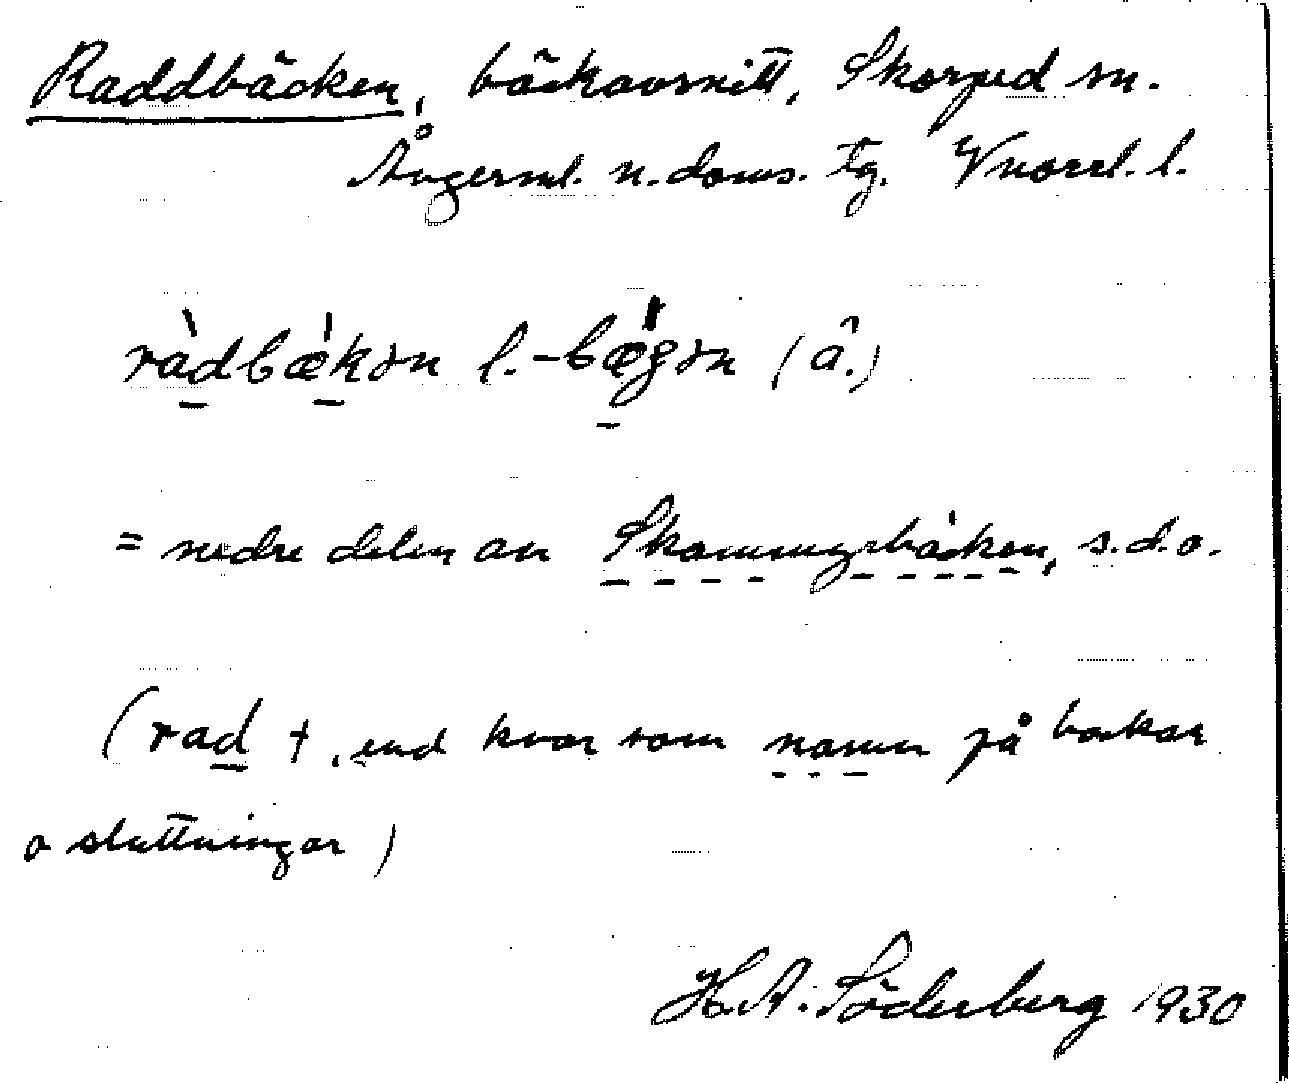 Raddbäcken, bäckavsnitt, Skorped sn.
Ångerml. n. doms. tg. Vnorrl. l.
ràdbækən l. -bægən (â.)
= nedre delen av bäcken, s.d.o.
(rad +, end kvar som namn på backar
o sluttningar)
H. A. Söderberg 1930